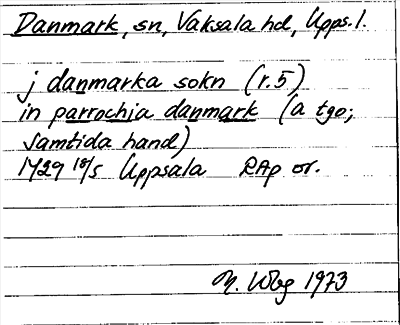 Danmark, sn, Vaksala hd, Upps. l.
j danmarka sokn (r. 5)
in parrochia danmark (a tgo;
samtida hand)
1429 18/5 Uppsala RAp or.
M. Wbg 1973